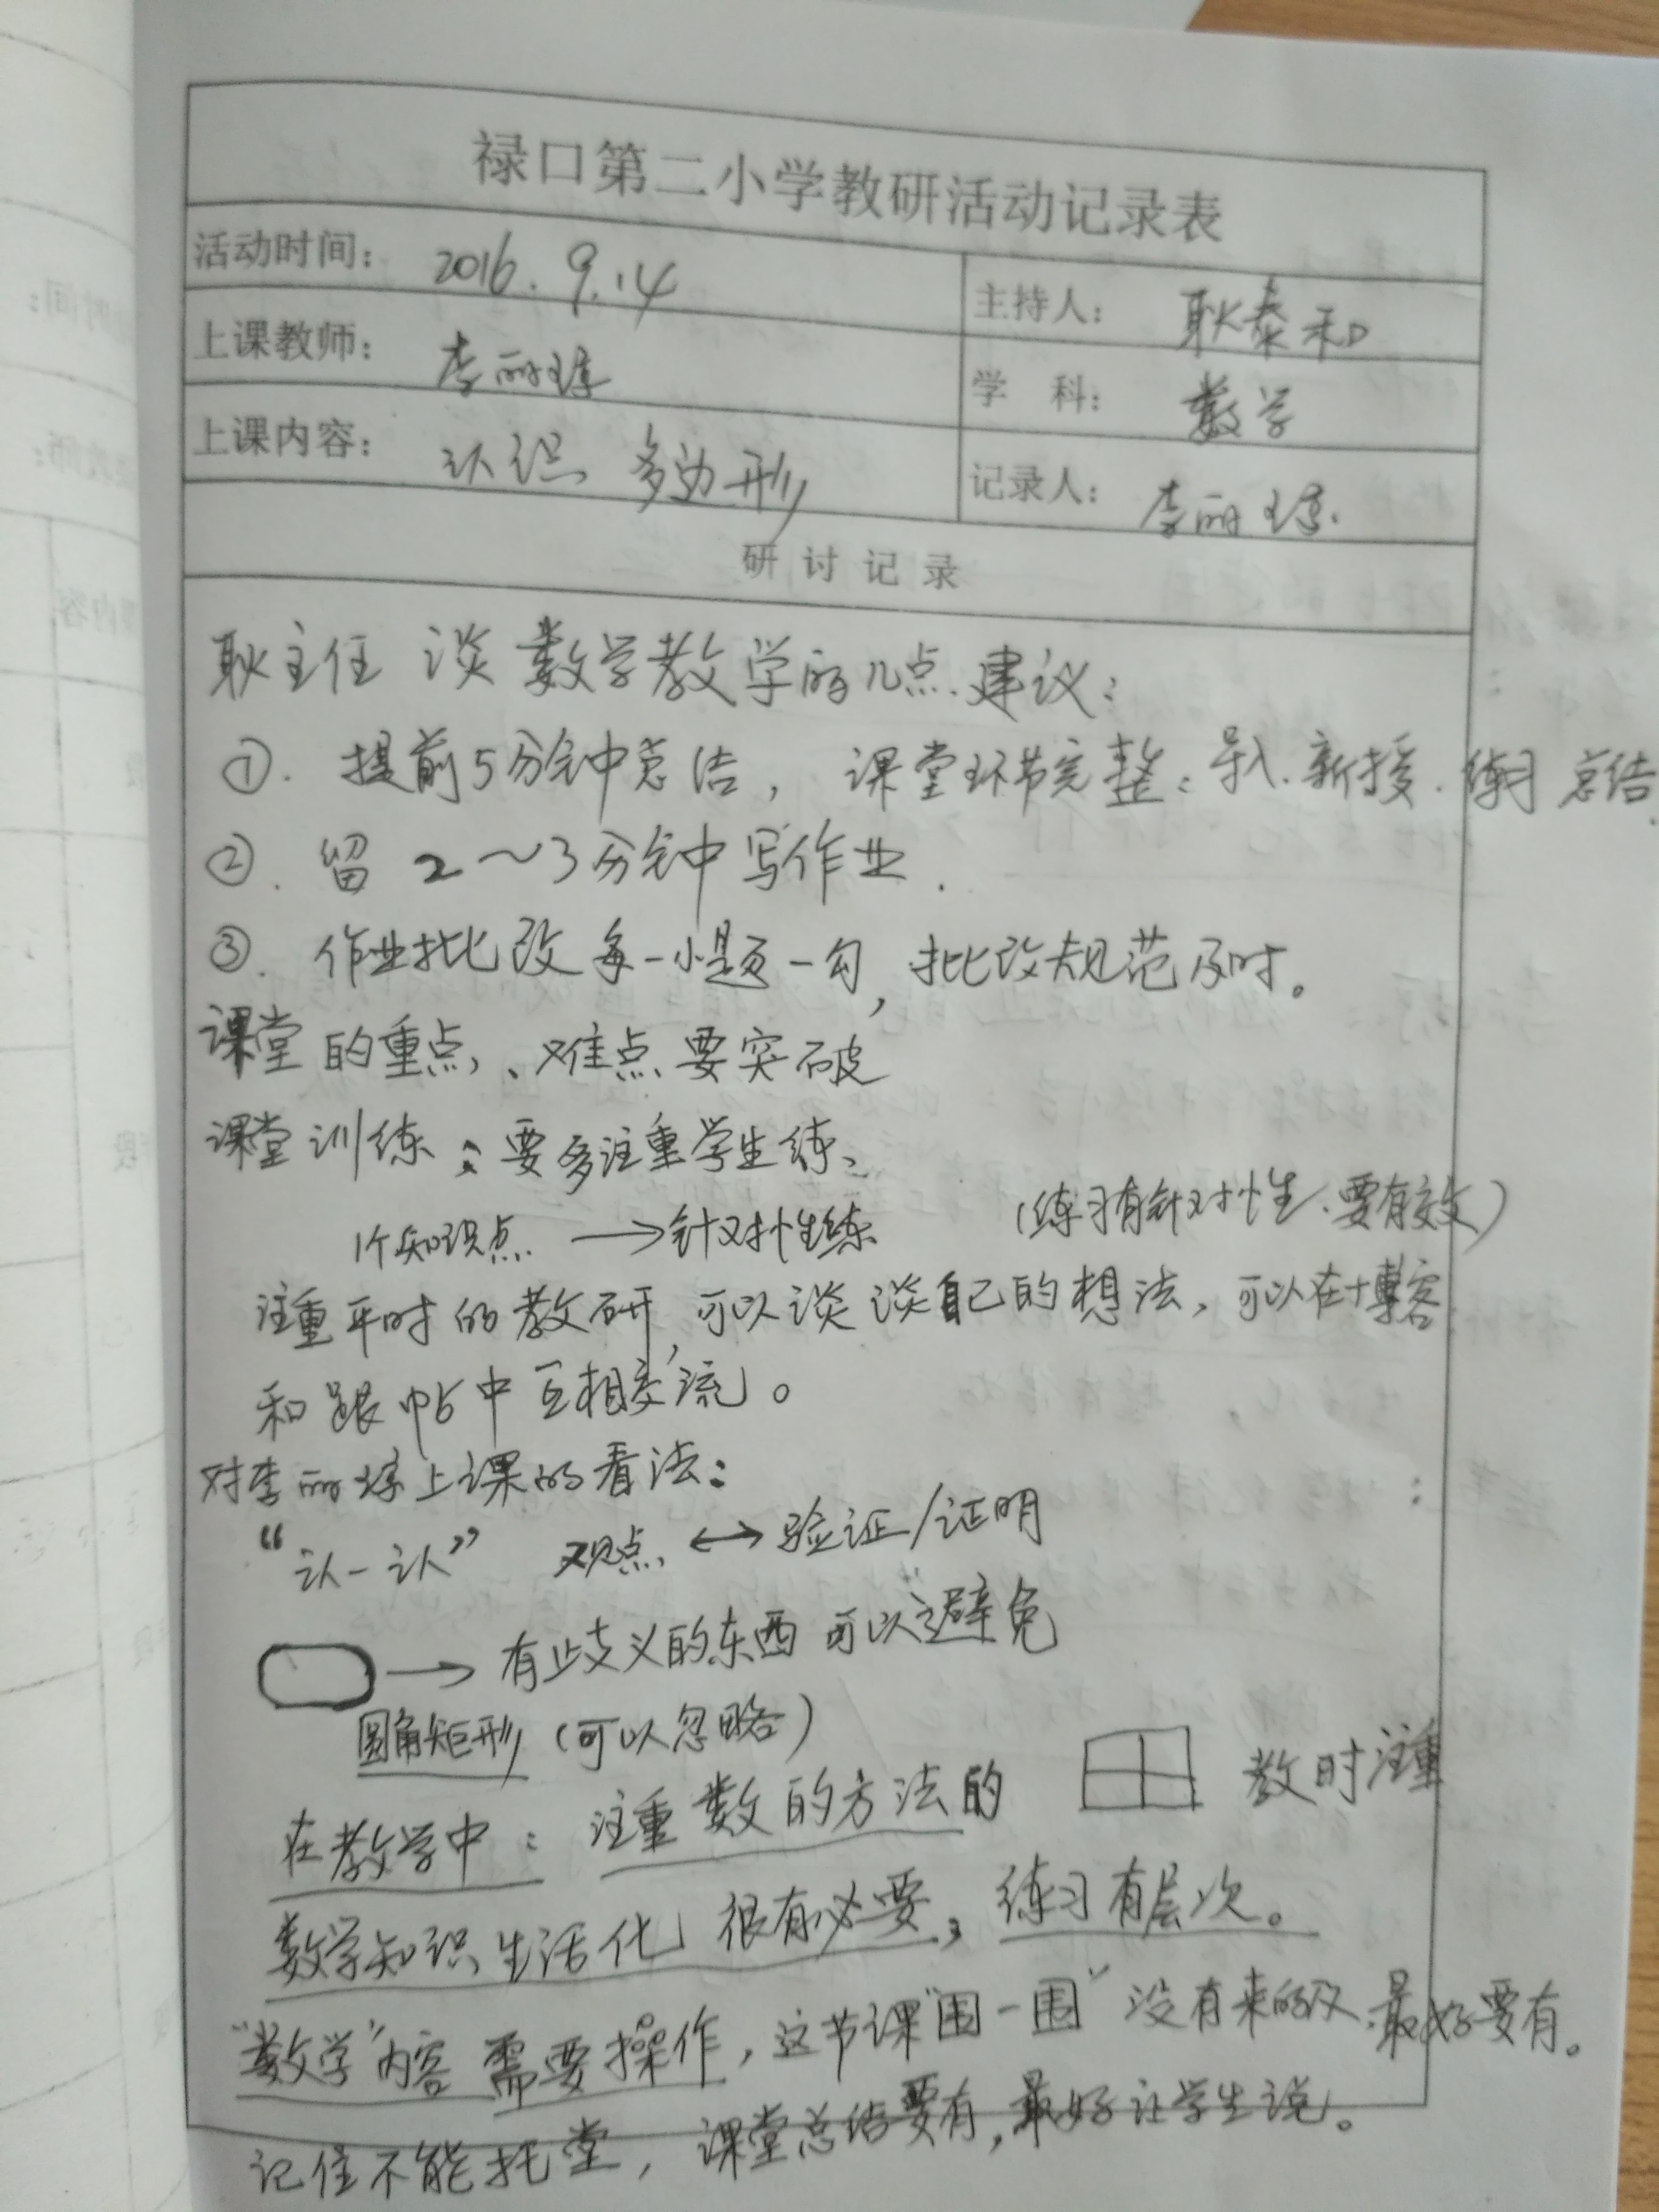 禄口第二小学教研活动记录表
活动时间： 2016.9.14
主持人： 耿泰和
上课教师： 李丽琼
学 科： 数学
上课内容： 认识 多边形
记录人： 李丽琼
研 讨 记 录
耿主任 谈 数学教学的几点建议：
①. 提前5分钟总结， 课堂环节完整：导入.新授.练习 总结.
②. 留 2～3分钟中写作业.
③. 作业批改每一小题一勾，批改规范及时。
课堂的重点、难点要突破
课堂训练：要多注重学生练、
1个知识点 → 针对性练 （练习有针对性、要有效）
注重平时的教研，可以谈谈自己的想法，可以在博客
和跟帖中互相交流。
对李丽琼上课的看法：
“认一认” 观点 ↔ 验证/证明
→ 有歧义的东西可以避免
圆角矩形（可以忽略）
在教学中：注重数的方法的 教时注重
数学知识生活化很有必要，练习有层次。
“数学”内容需要操作，这节课“围一围”没有来的及.最好要有。
记住不能托堂，课堂总结要有，最好让学生说。